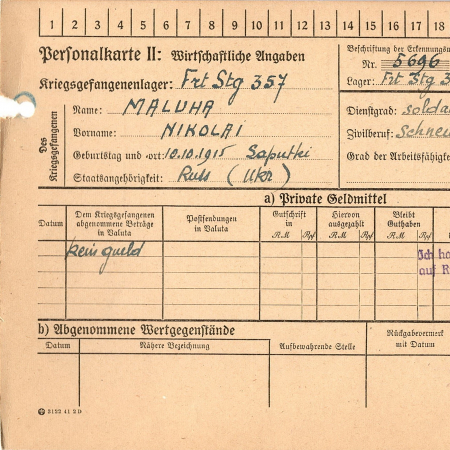 1 2 3 4 5 6 7 8 9 10 11 12 13 14 15 16 17 18
Personalkarte II: Wirtschaftliche Angaben
Beschriftung der Erkennungsm
Nr. 5696
Kriegsgefangenenlager: Frt Stg 357
Lager: Frt Stg 3
Des Kriegsgefangenen
Name: MALUHA
Dienstgrad: Solda
Vorname: NIKOLAI
Zivilberuf: Schnei
Geburtstag und -ort: 10.10.1915 Saputki
Grad der Arbeitsfähigke
Staatsangehörigkeit: Russ (Ukr)
a) Private Geldmittel
Datum
Dem Kriegsgefangenen abgenommene Beträge in Valuta
Postsendungen in Valuta
Gutschrift in
RM Rpf
Hiervon ausgezahlt
RM Rpf
Bleibt Guthaben
RM Rpf
kein gueld
Ich ha
auf R
b) Abgenommene Wertgegenstände
Datum
Nähere Bezeichnung
Aufbewahrende Stelle
Rückgabevermerk mit Datum
3122 41 2 D